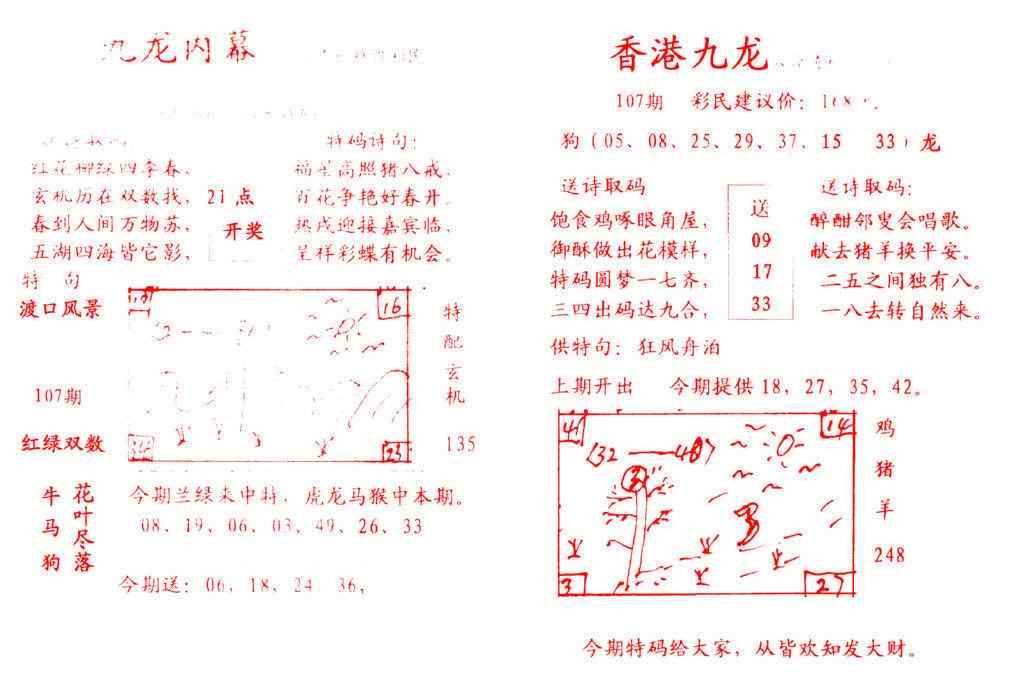 九龙内幕
特码诗句:
红花柳绿四季春,
玄机历在双数找,
春到人间万物苏,
五湖四海皆它影,
21点
开奖
福星高照猪八戒,
百花争艳好春开。
热戍迎接嘉宾临,
呈祥彩蝶有机会。
特 句
渡口风景
107期
红绿双数
16
23
特配玄机
135
牛马狗
花叶尽落
今期兰绿来中特, 虎龙马猴中本期。
08、19、06、03、49、26、33
今期送: 06, 18, 24 36,
香港九龙
107期 彩民建议价:
狗(05、08、25、29、37、15 33)龙
送诗取码
饱食鸡啄眼角屋,
御酥做出花模样,
特码圆梦一七齐,
三四出码达九合,
送
09
17
33
送诗取码:
醉酣邻叟会唱歌。
献去猪羊换平安。
二五之间独有八。
一八去转自然来。
供特句: 狂风舟泊
上期开出 今期提供18, 27, 35, 42。
41
14
3
27
鸡
猪
羊
248
今期特码给大家, 从皆欢知发大财。